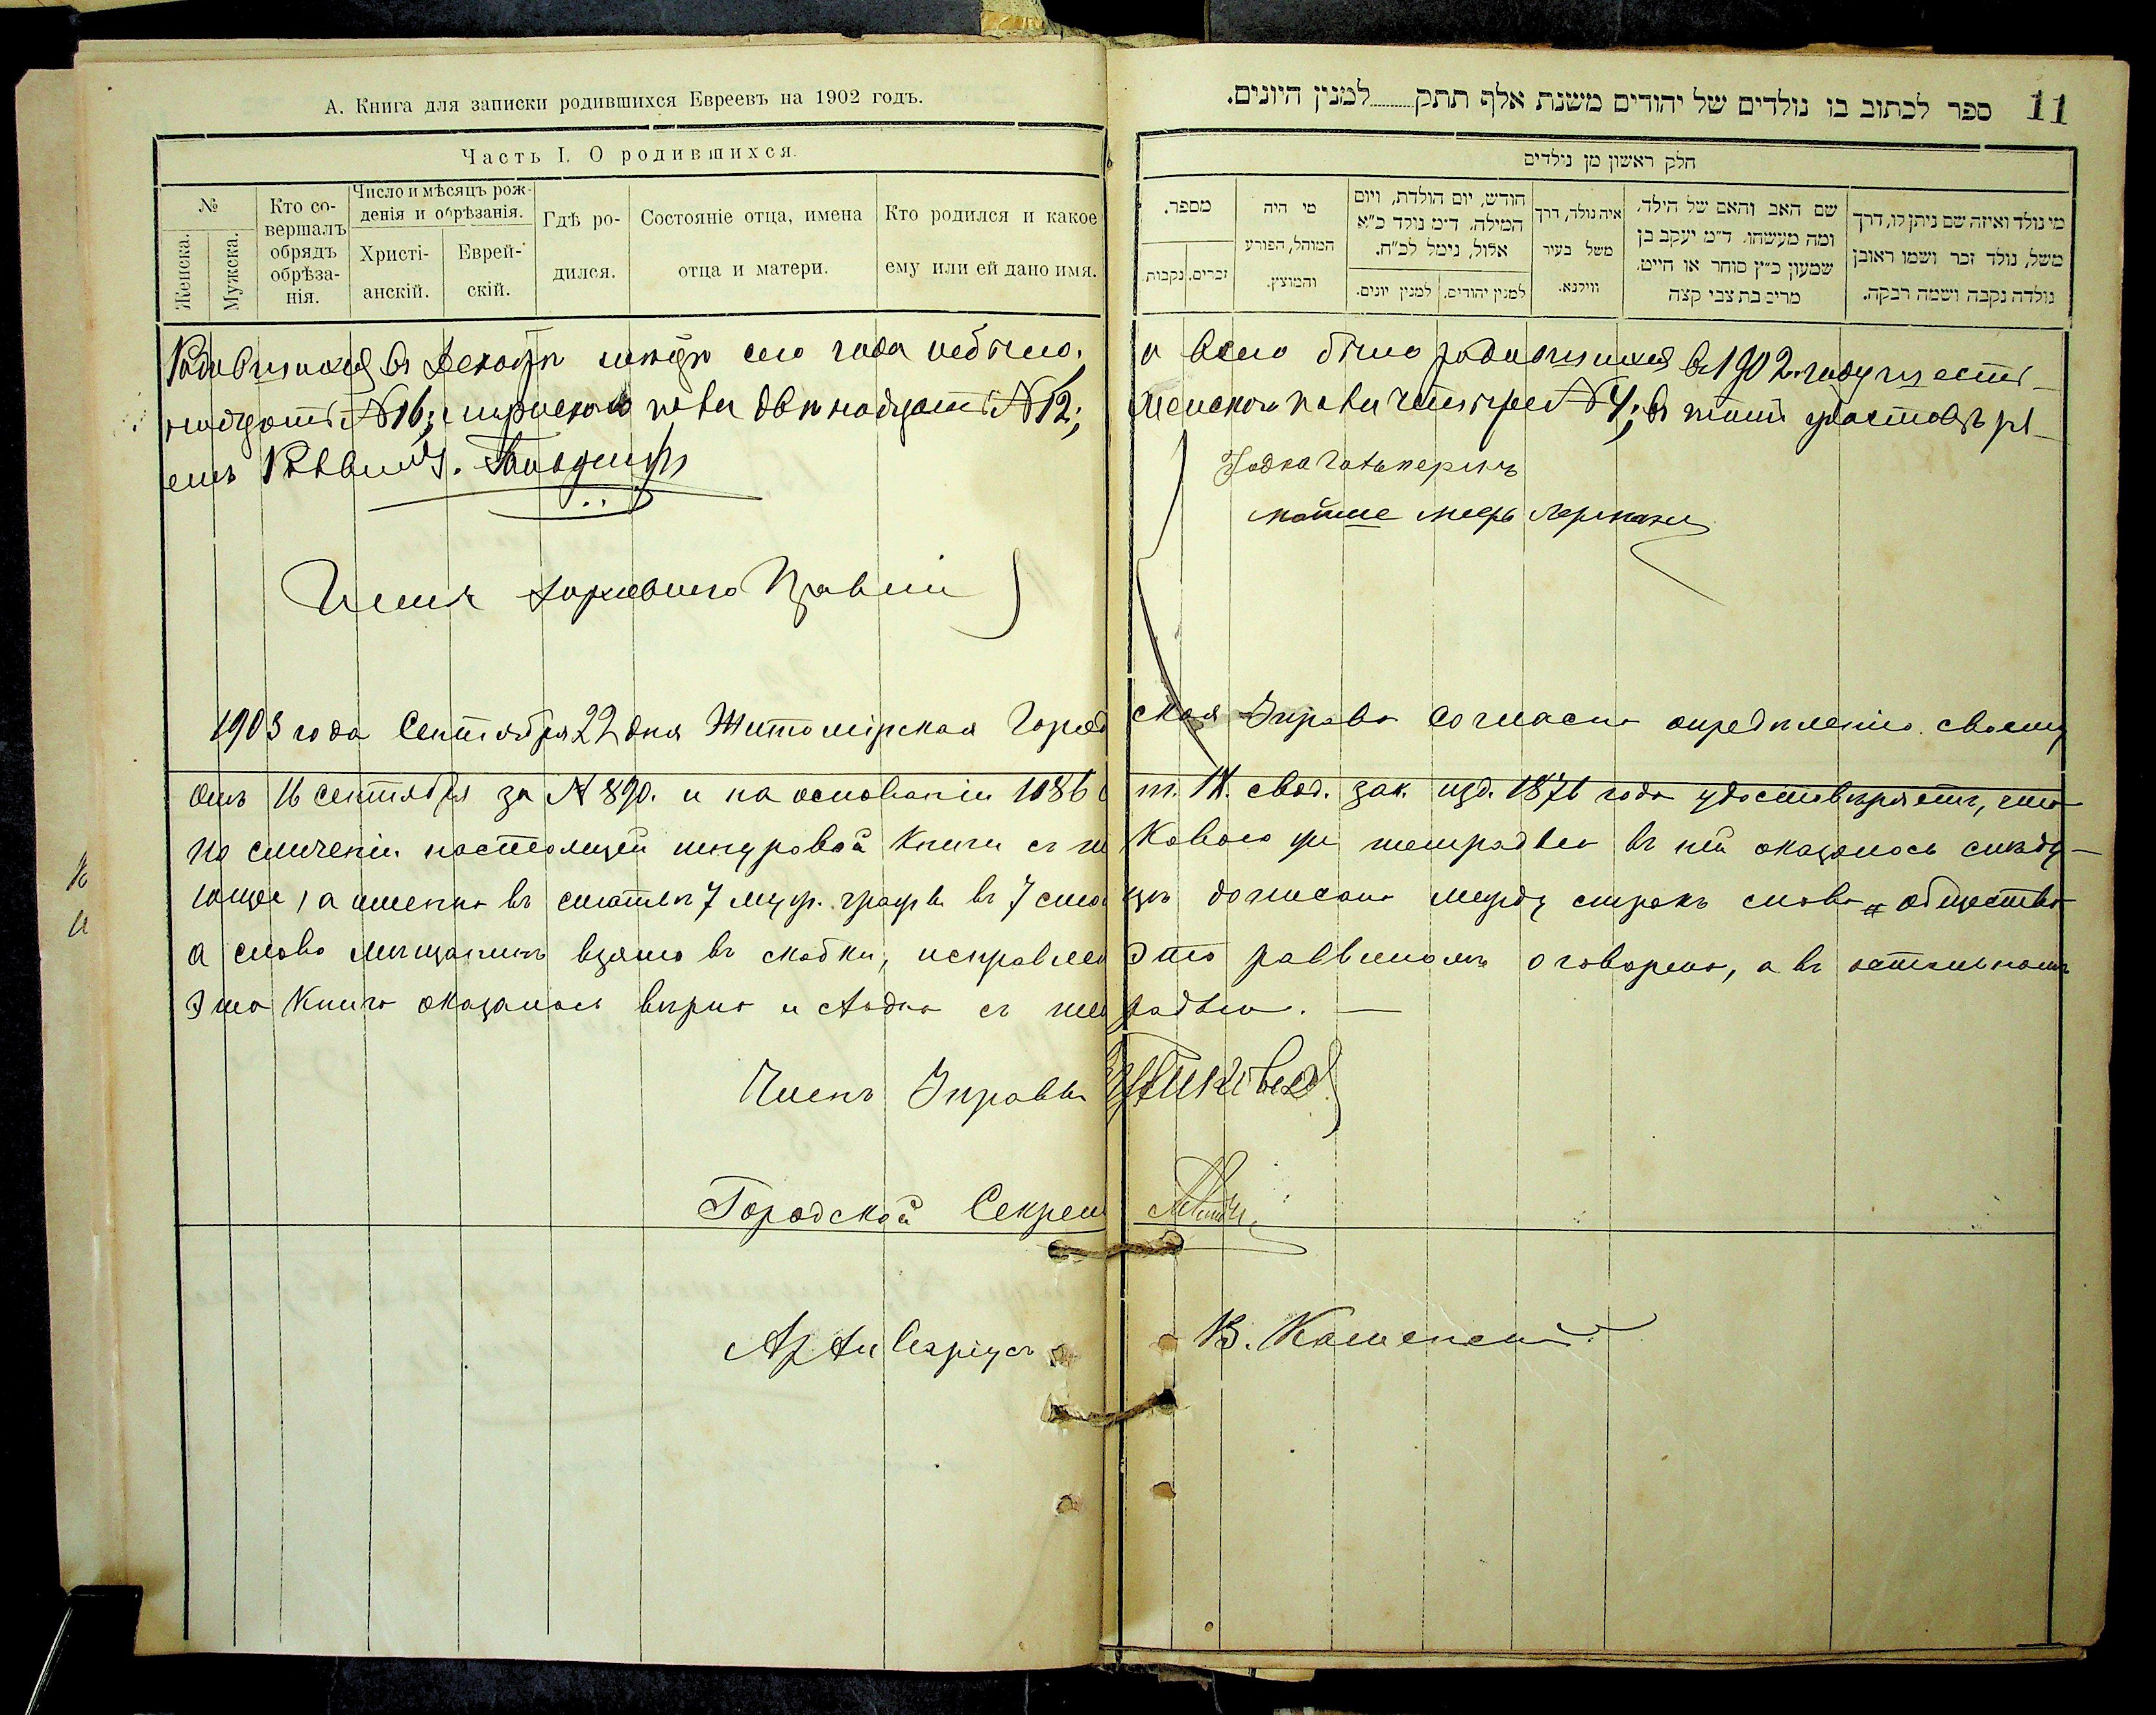 А. Книга для записки родившихся Евреевъ на 1902 годъ.
Часть I. О родившихся.
№
Женска.
Мужска.
Кто совершалъ обрядъ обрѣзанія.
Число и мѣсяцъ рожденія и обрѣзанія.
Христіанскій.
Еврейскій.
Гдѣ родился.
Состояніе отца, имена отца и матери.
Кто родился и какое ему или ей дано имя.
11
ספר לכתוב בו נולדים של יהודים משנת אלף תתק למנין היונים.
חלק ראשון מן נולדים
מי נולד ואיזה שם ניתן לו, דרך משל, נולד זכר ושמו ראובן נולדה נקבה ושמה רבקה.
שם האב והאם של הילד, ומה מעשהו. ד״מ יעקב בן שמעון כ״ץ סוחר או חייט, מרים בת צבי קצה
איה נולד, דרך משל בעיר ווילנא.
חודש, יום הולדת, ויום המילה, ד״מ נולד כ״א אלול, נימל לכ״ח.
למנין יהודים.
למנין יונים.
מי היה המוהל, הפורע והמוצץ.
מספר.
זכרים.
נקבות
Родившихся въ Декабрѣ сего года небыло, а всего было родившихся въ 1902 году шест-
надцать №16; мужеского пола двѣнадцать №12; женского пола четыре №4; въ
Раввинъ
1903 года Сентября 22 дня Житомірская Городская Управа согласно опредѣленію своему
отъ 16 сентября за № 890. и на основаніи 1086 т. IX. свод. зак. изд. 1876 года удостовѣряетъ, что
по сличеніи настоящей шнуровой книги съ таковою же тетрадью въ ней оказалось слѣду-
ющее, а именно въ статьѣ 7 муж. графы въ 7 дописано между строкъ слово общества
а слово мѣщанинъ взято въ скобки, это раввиномъ оговорено, а въ остальномъ
эта книга оказалась вѣрна и сходна съ тетрадью.
Членъ Управы
Городской Секрет
Архиваріусъ В. Каменскій